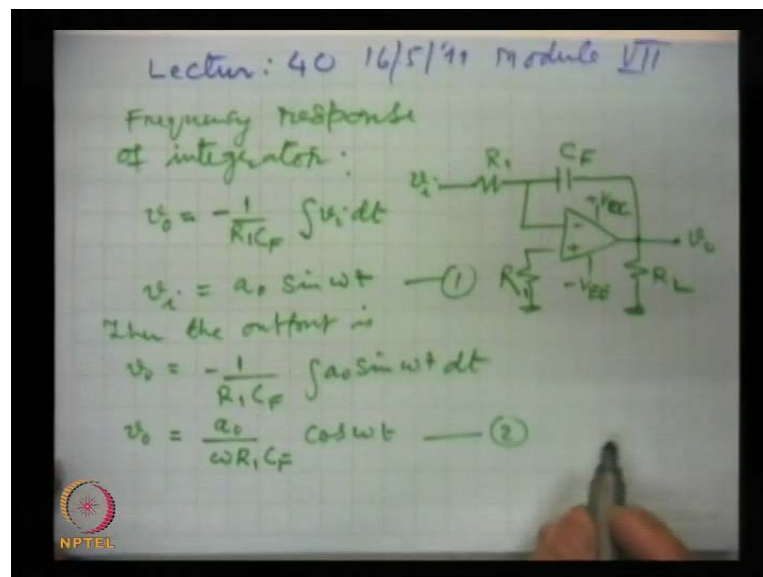 Lectur: 40 16/5/'11 Module VII
Frequency response
of integrator:
v₀ = - 1/(R₁C_F) ∫ vᵢ dt
vᵢ = a₀ sin ωt — ①
Then the output is
v₀ = - 1/(R₁C_F) ∫ a₀ sin ωt dt
v₀ = a₀/(ωR₁C_F) cos ωt — ②
vᵢ R₁ C_F
+V_CC
- + v₀
R₁ -V_EE R_L
NPTEL